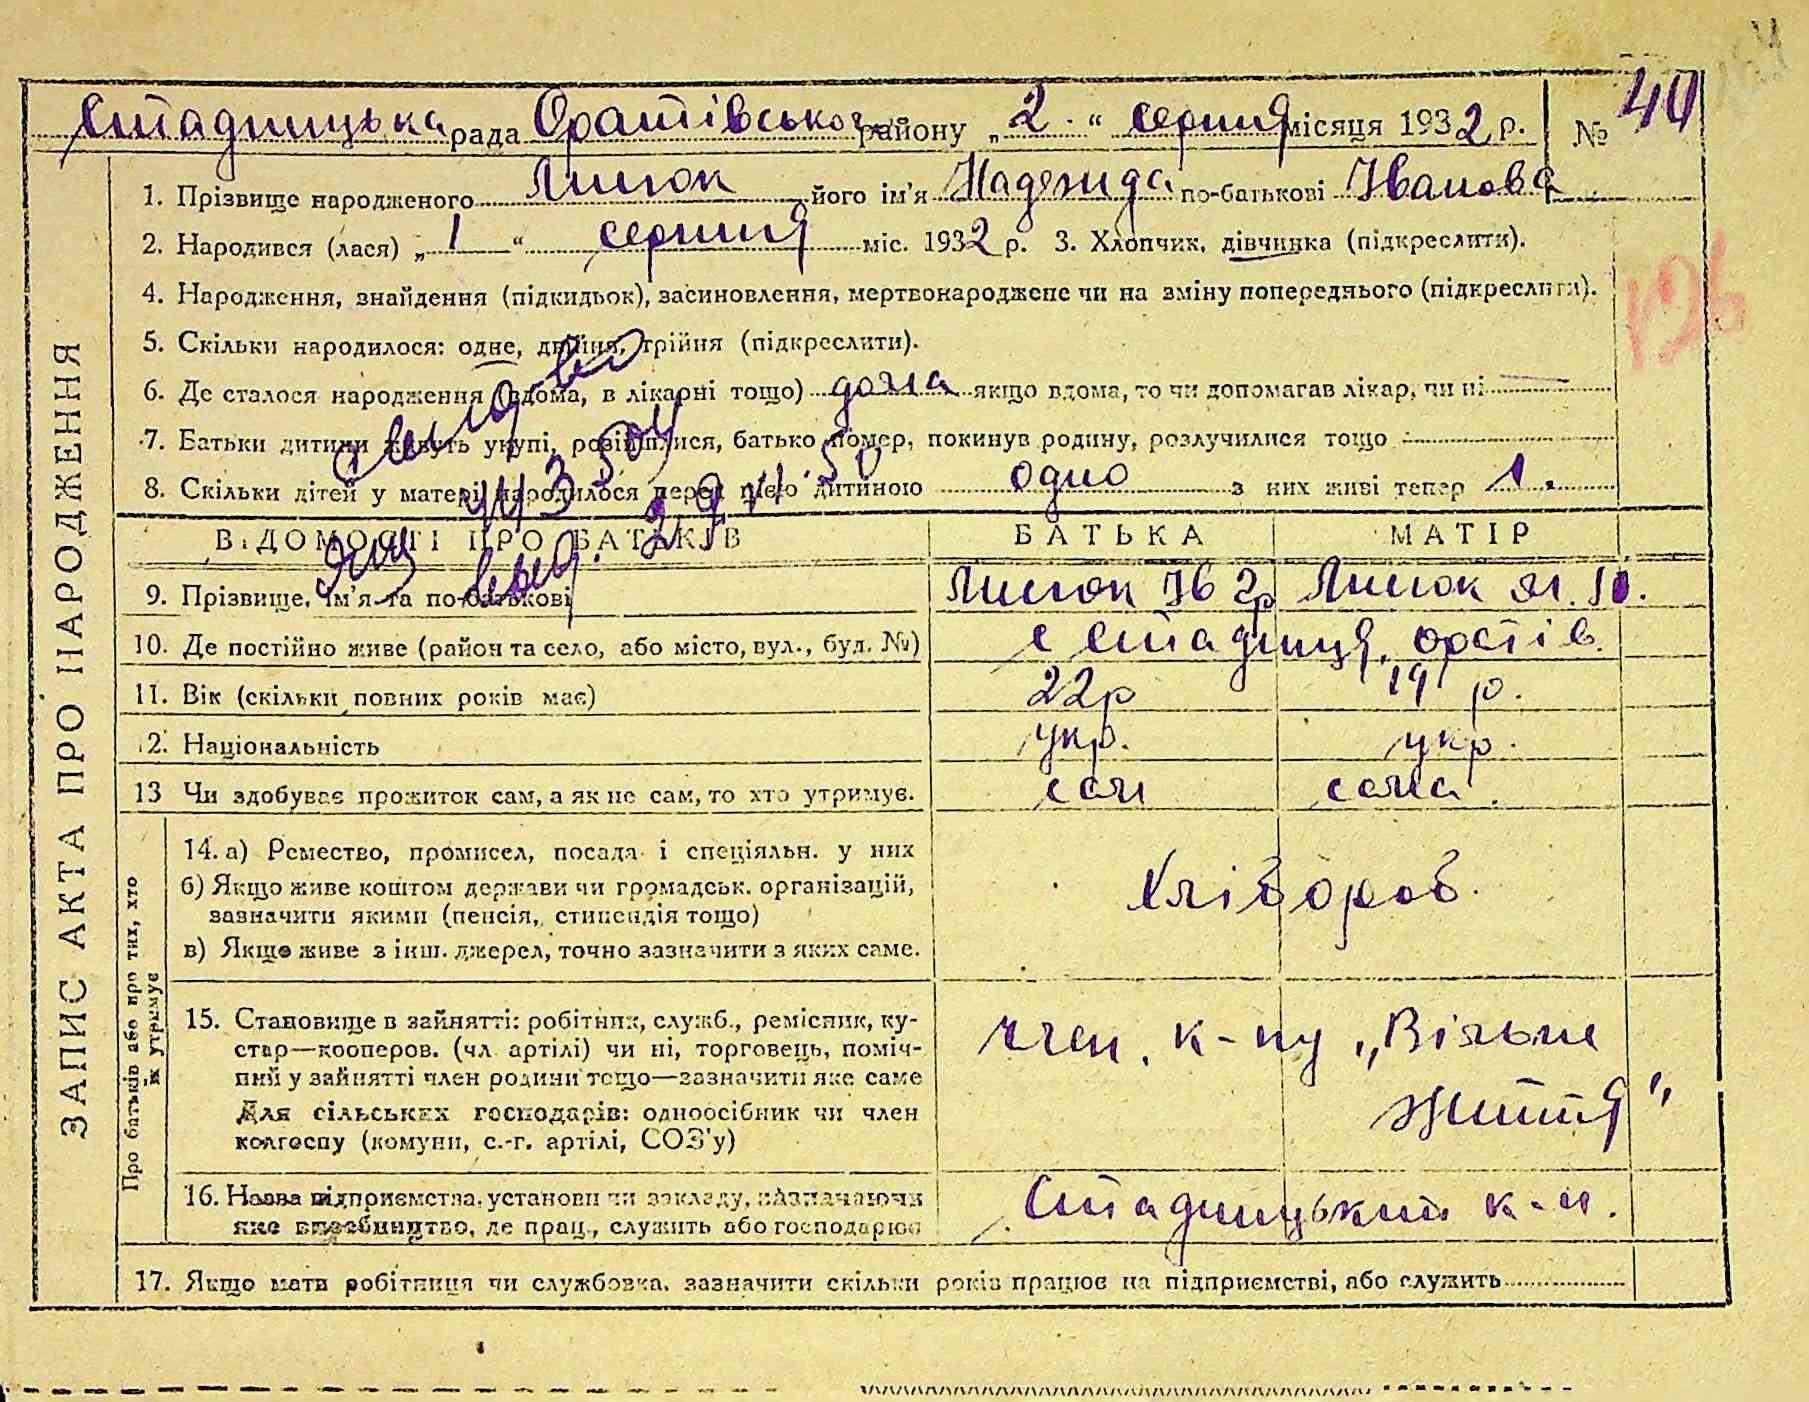 Стадницька рада Оратівського району „2." серпня місяця 1932 р. № 40
ЗАПИС АКТА ПРО НАРОДЖЕННЯ
1. Прізвище народженого Лисюк його ім'я Надежда по-батькові Іванова
2. Народився (лася) „1" серпня міс. 1932 р. 3. Хлопчик, дівчинка (підкреслити).
4. Народження, знайдення (підкидьок), засиновлення, мертвонароджене чи на зміну попереднього (підкреслити).
126
5. Скільки народилося: одне, двійня, трійня (підкреслити).
6. Де сталося народження (вдома, в лікарні тощо) дома якщо вдома, то чи допомагав лікар, чи ні —
7. Батьки дитини живуть укупі, розійшлися, батько помер, покинув родину, розлучилися тощо
8. Скільки дітей у матері народилося перед цією дитиною одно з них живі тепер 1.
29
ВІДОМОСТІ ПРО БАТЬКІВ БАТЬКА МАТІР
9. Прізвище, ім'я та по-батькові Лисюк Ів Гр Лисюк
10. Де постійно живе (район та село, або місто, вул., буд. №) с Стадниця, оратів.
11. Вік (скільки повних років має) 22р 19 р.
12. Національність укр. укр.
13 Чи здобуває прожиток сам, а як не сам, то хто утримує. сам сама
Про батьків або про тих, хто їх утримує
14. а) Ремество, промисел, посада і спеціяльн. у них
б) Якщо живе коштом держави чи громадськ. організацій,
зазначити якими (пенсія, стипендія тощо)
в) Якщо живе з інш. джерел, точно зазначити з яких саме.
хліборов.
15. Становище в зайнятті: робітник, служб., ремісник, ку-
стар—кооперов. (чл артілі) чи ні, торговець, поміч-
ний у зайнятті член родини тощо—зазначити яке саме
Для сільських господарів: одноосібник чи член
колгоспу (комуни, с.-г. артілі, СОЗ'у)
член. к-пу „Вільне
життя"
16. Назва підприємства, установи чи закладу, зазначаючи
яке виробництво, де прац., служить або господарює
Стадницький к-п.
17. Якщо мати робітниця чи службовка, зазначити скільки років працює на підприємстві, або служить